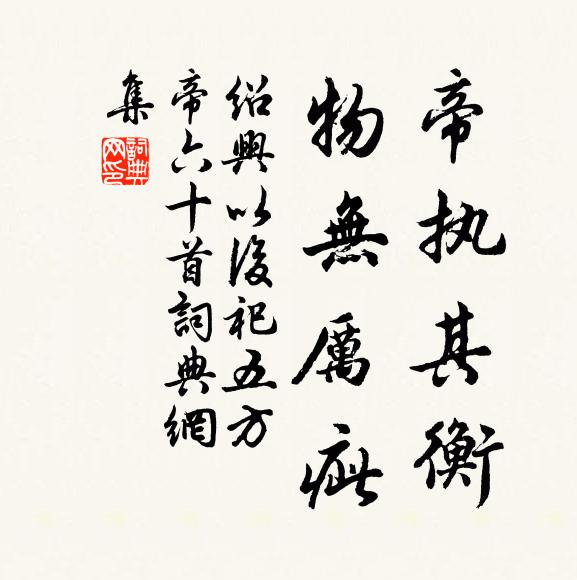 帝执其衡
物無厲疵
紹興以後祀五方
帝六十首詞典網
集
詞典网印